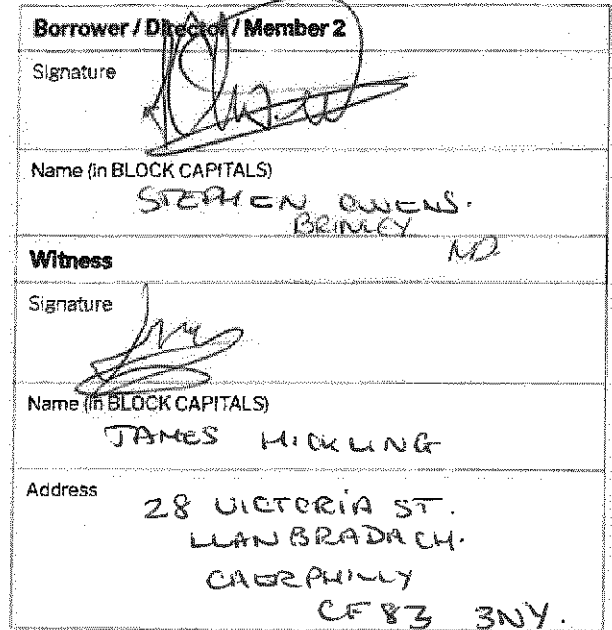 Borrower / Director / Member 2
Signature
Name (in BLOCK CAPITALS)
STEPHEN OWENS.
BRINLEY
Witness
Signature
Name (in BLOCK CAPITALS)
JAMES HICKLING
Address
28 VICTORIA ST.
LLANBRADACH.
CAERPHILLY
CF83 3NY.